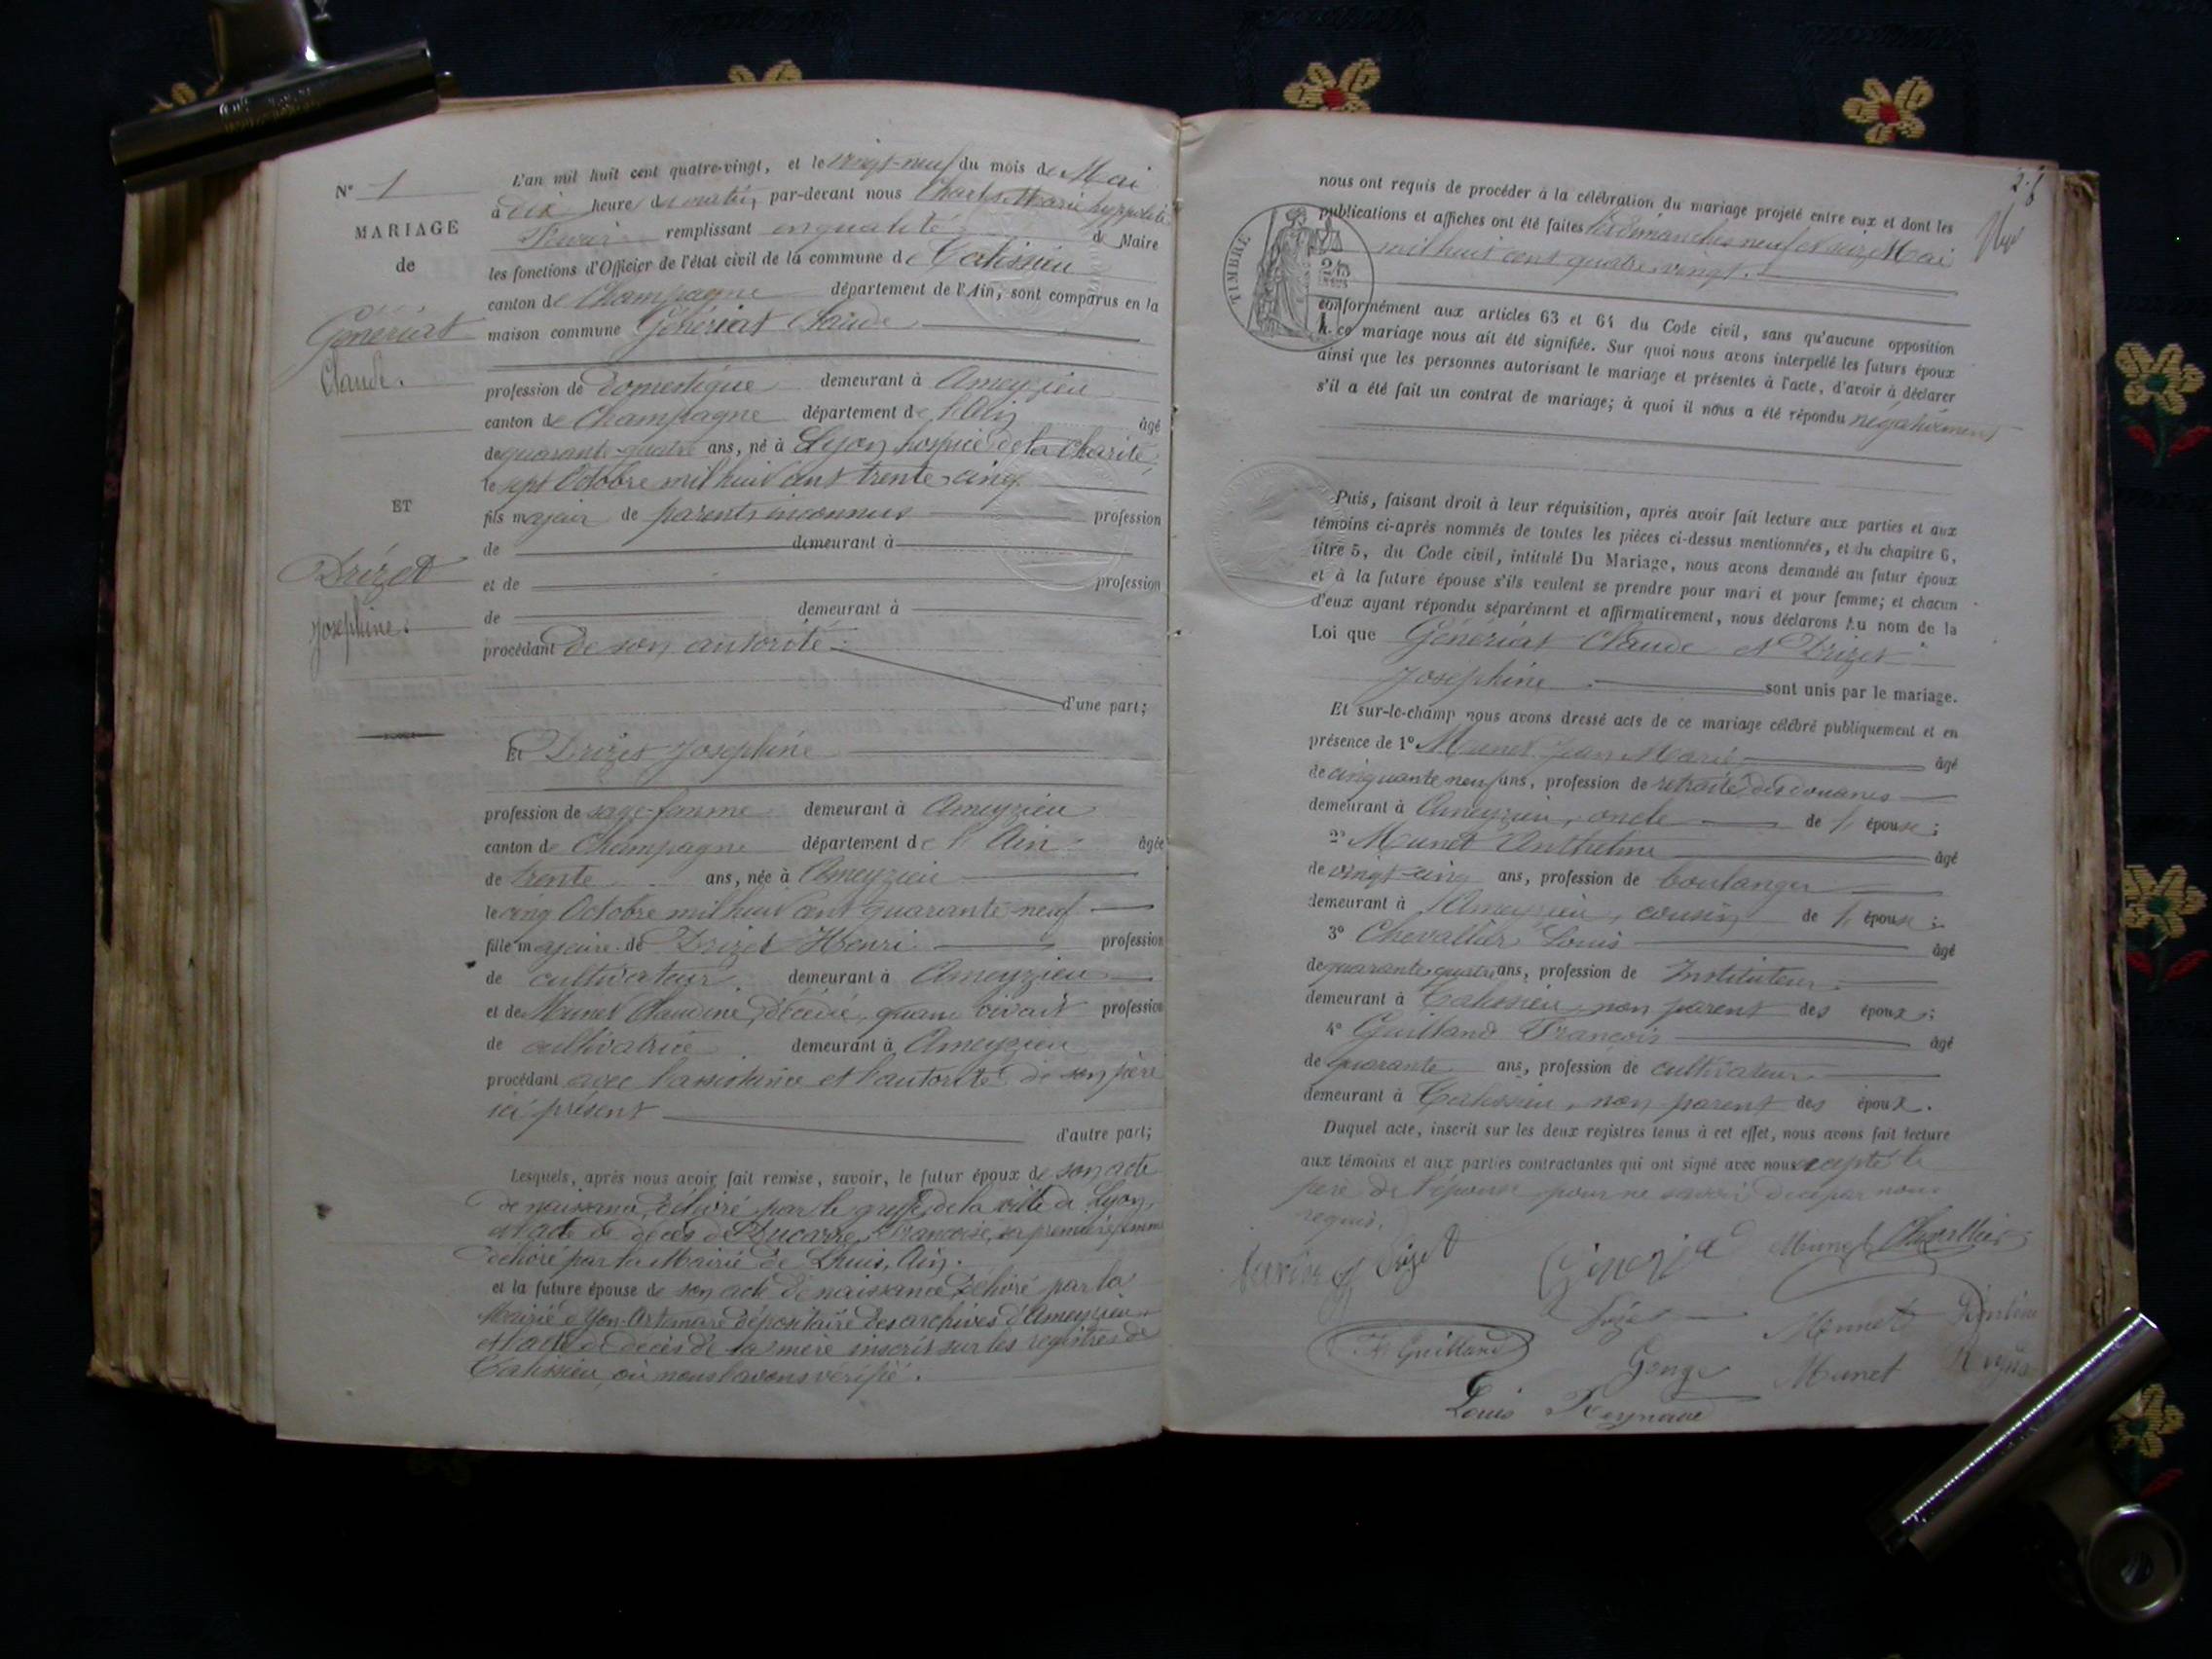 N° 1
MARIAGE
de
Génériat
Claude.
ET
Drizet
Joséphine.
L'an mil huit cent quatre-vingt, et le vingt-neuf du mois de Mai
à dix heure du matin, par-devant nous Charles Marie hyppolite
remplissant en qualité de Maire
les fonctions d'Officier de l'état civil de la commune de Talissieu
canton de Champagne département de l'Ain, sont comparus en la
maison commune Génériat Claude
profession de domestique demeurant à Ameyzieu
canton de Champagne département de l'Ain âgé
de quarante-quatre ans, né à Lyon hospice de la Charité,
le sept Octobre mil huit cent trente cinq
fils majeur de parents inconnus profession
de demeurant à
et de profession
de demeurant à
procédant de son autorité
d'une part;
Et Drizet Joséphine
profession de sage-femme demeurant à Ameyzieu
canton de Champagne département de l'Ain âgée
de trente ans, née à Ameyzieu
le cinq Octobre mil huit cent quarante-neuf
fille majeure de Drizet Henri profession
de cultivateur demeurant à Ameyzieu
et de Munet Claudine, décédée, quand vivait profession
de cultivatrice demeurant à Ameyzieu
procédant avec l'assistance et l'autorité de son père
ici présent
d'autre part;
Lesquels, après nous avoir fait remise, savoir, le futur époux de son acte
de naissance, délivré par le greffe de la ville de Lyon,
et l'acte de décès de Ducarre, Françoise, sa première femme
délivré par la Mairie de Lhuis, Ain.
et la future épouse de son acte de naissance, délivré par la
Mairie d'Yon-Artemare dépositaire des archives d'Ameyzieu
et l'acte de décès de sa mère inscrit sur les registres de
Talissieu, où nous l'avons vérifié.
nous ont requis de procéder à la célébration du mariage projeté entre eux et dont les
publications et affiches ont été faites les dimanches neuf et seize Mai
mil huit cent quatre-vingt.
TIMBRE
conformément aux articles 63 et 64 du Code civil, sans qu'aucune opposition
à ce mariage nous ait été signifiée. Sur quoi nous avons interpellé les futurs époux
ainsi que les personnes autorisant le mariage et présentes à l'acte, d'avoir à déclarer
s'il a été fait un contrat de mariage; à quoi il nous a été répondu négativement
Puis, faisant droit à leur réquisition, après avoir fait lecture aux parties et aux
témoins ci-après nommés de toutes les pièces ci-dessus mentionnées, et du chapitre 6,
titre 5, du Code civil, intitulé Du Mariage, nous avons demandé au futur époux
et à la future épouse s'ils veulent se prendre pour mari et pour femme; et chacun
d'eux ayant répondu séparément et affirmativement, nous déclarons au nom de la
Loi que Génériat Claude et Drizet
Joséphine sont unis par le mariage.
Et sur-le-champ nous avons dressé acte de ce mariage célébré publiquement et en
présence de 1° Munet Jean Marie, âgé
de cinquante neuf ans, profession de retraité des douanes
demeurant à Ameyzieu, oncle de l'épouse;
2° Munet Anthelme âgé
de vingt-cinq ans, profession de boulanger
demeurant à Ameyzieu, cousin de l'épouse;
3° Chevallier Louis âgé
de quarante-quatre ans, profession de Instituteur
demeurant à Talissieu, non parent des époux;
4° Guilland François âgé
de quarante ans, profession de cultivateur
demeurant à Talissieu, non parent des époux.
Duquel acte, inscrit sur les deux registres tenus à cet effet, nous avons fait lecture
aux témoins et aux parties contractantes qui ont signé avec nous excepté le
père de l'épouse pour ne savoir de ce par nous
requis.
Drizet Munet Chevallier
Munet
Fs Guilland Munet
Louis Reynaud